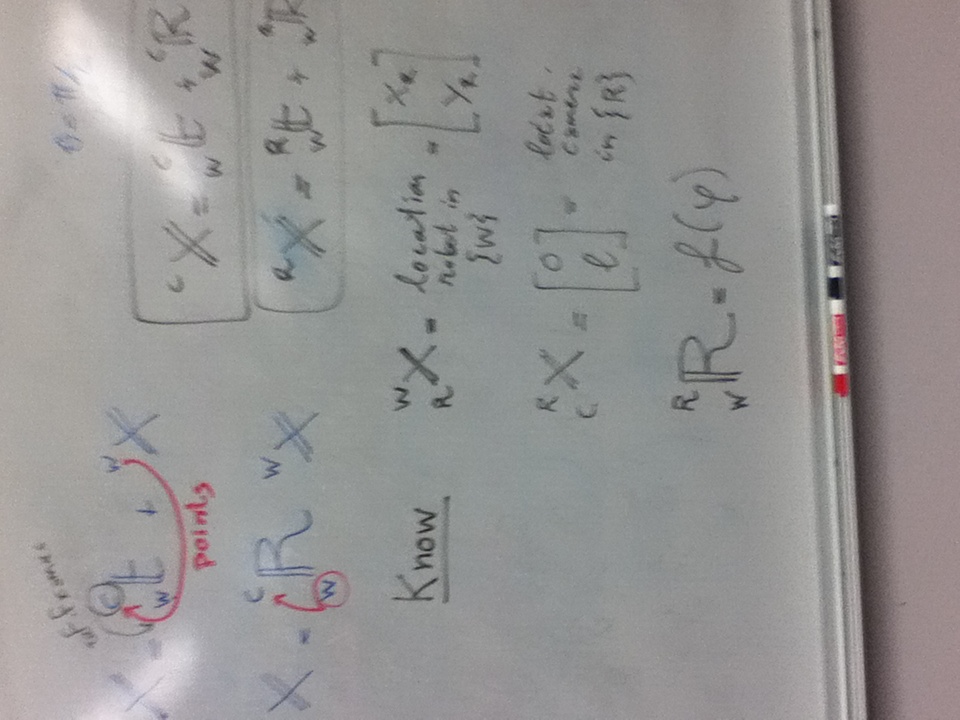 ref. frames
X = ᶜ_W t + ᵂX
points
X = ᶜ_W R ᵂX
ᶜX = ᶜ_W t + ᶜ_W R
ᴿX = ᴿ_W t + ᴿ_W R
Know
ᵂ_R X = location robot in {W} = [x_R y_R]
ᴿ_C X = [0 ℓ] = locat. camera in {R}
ᴿ_W R = f(φ)